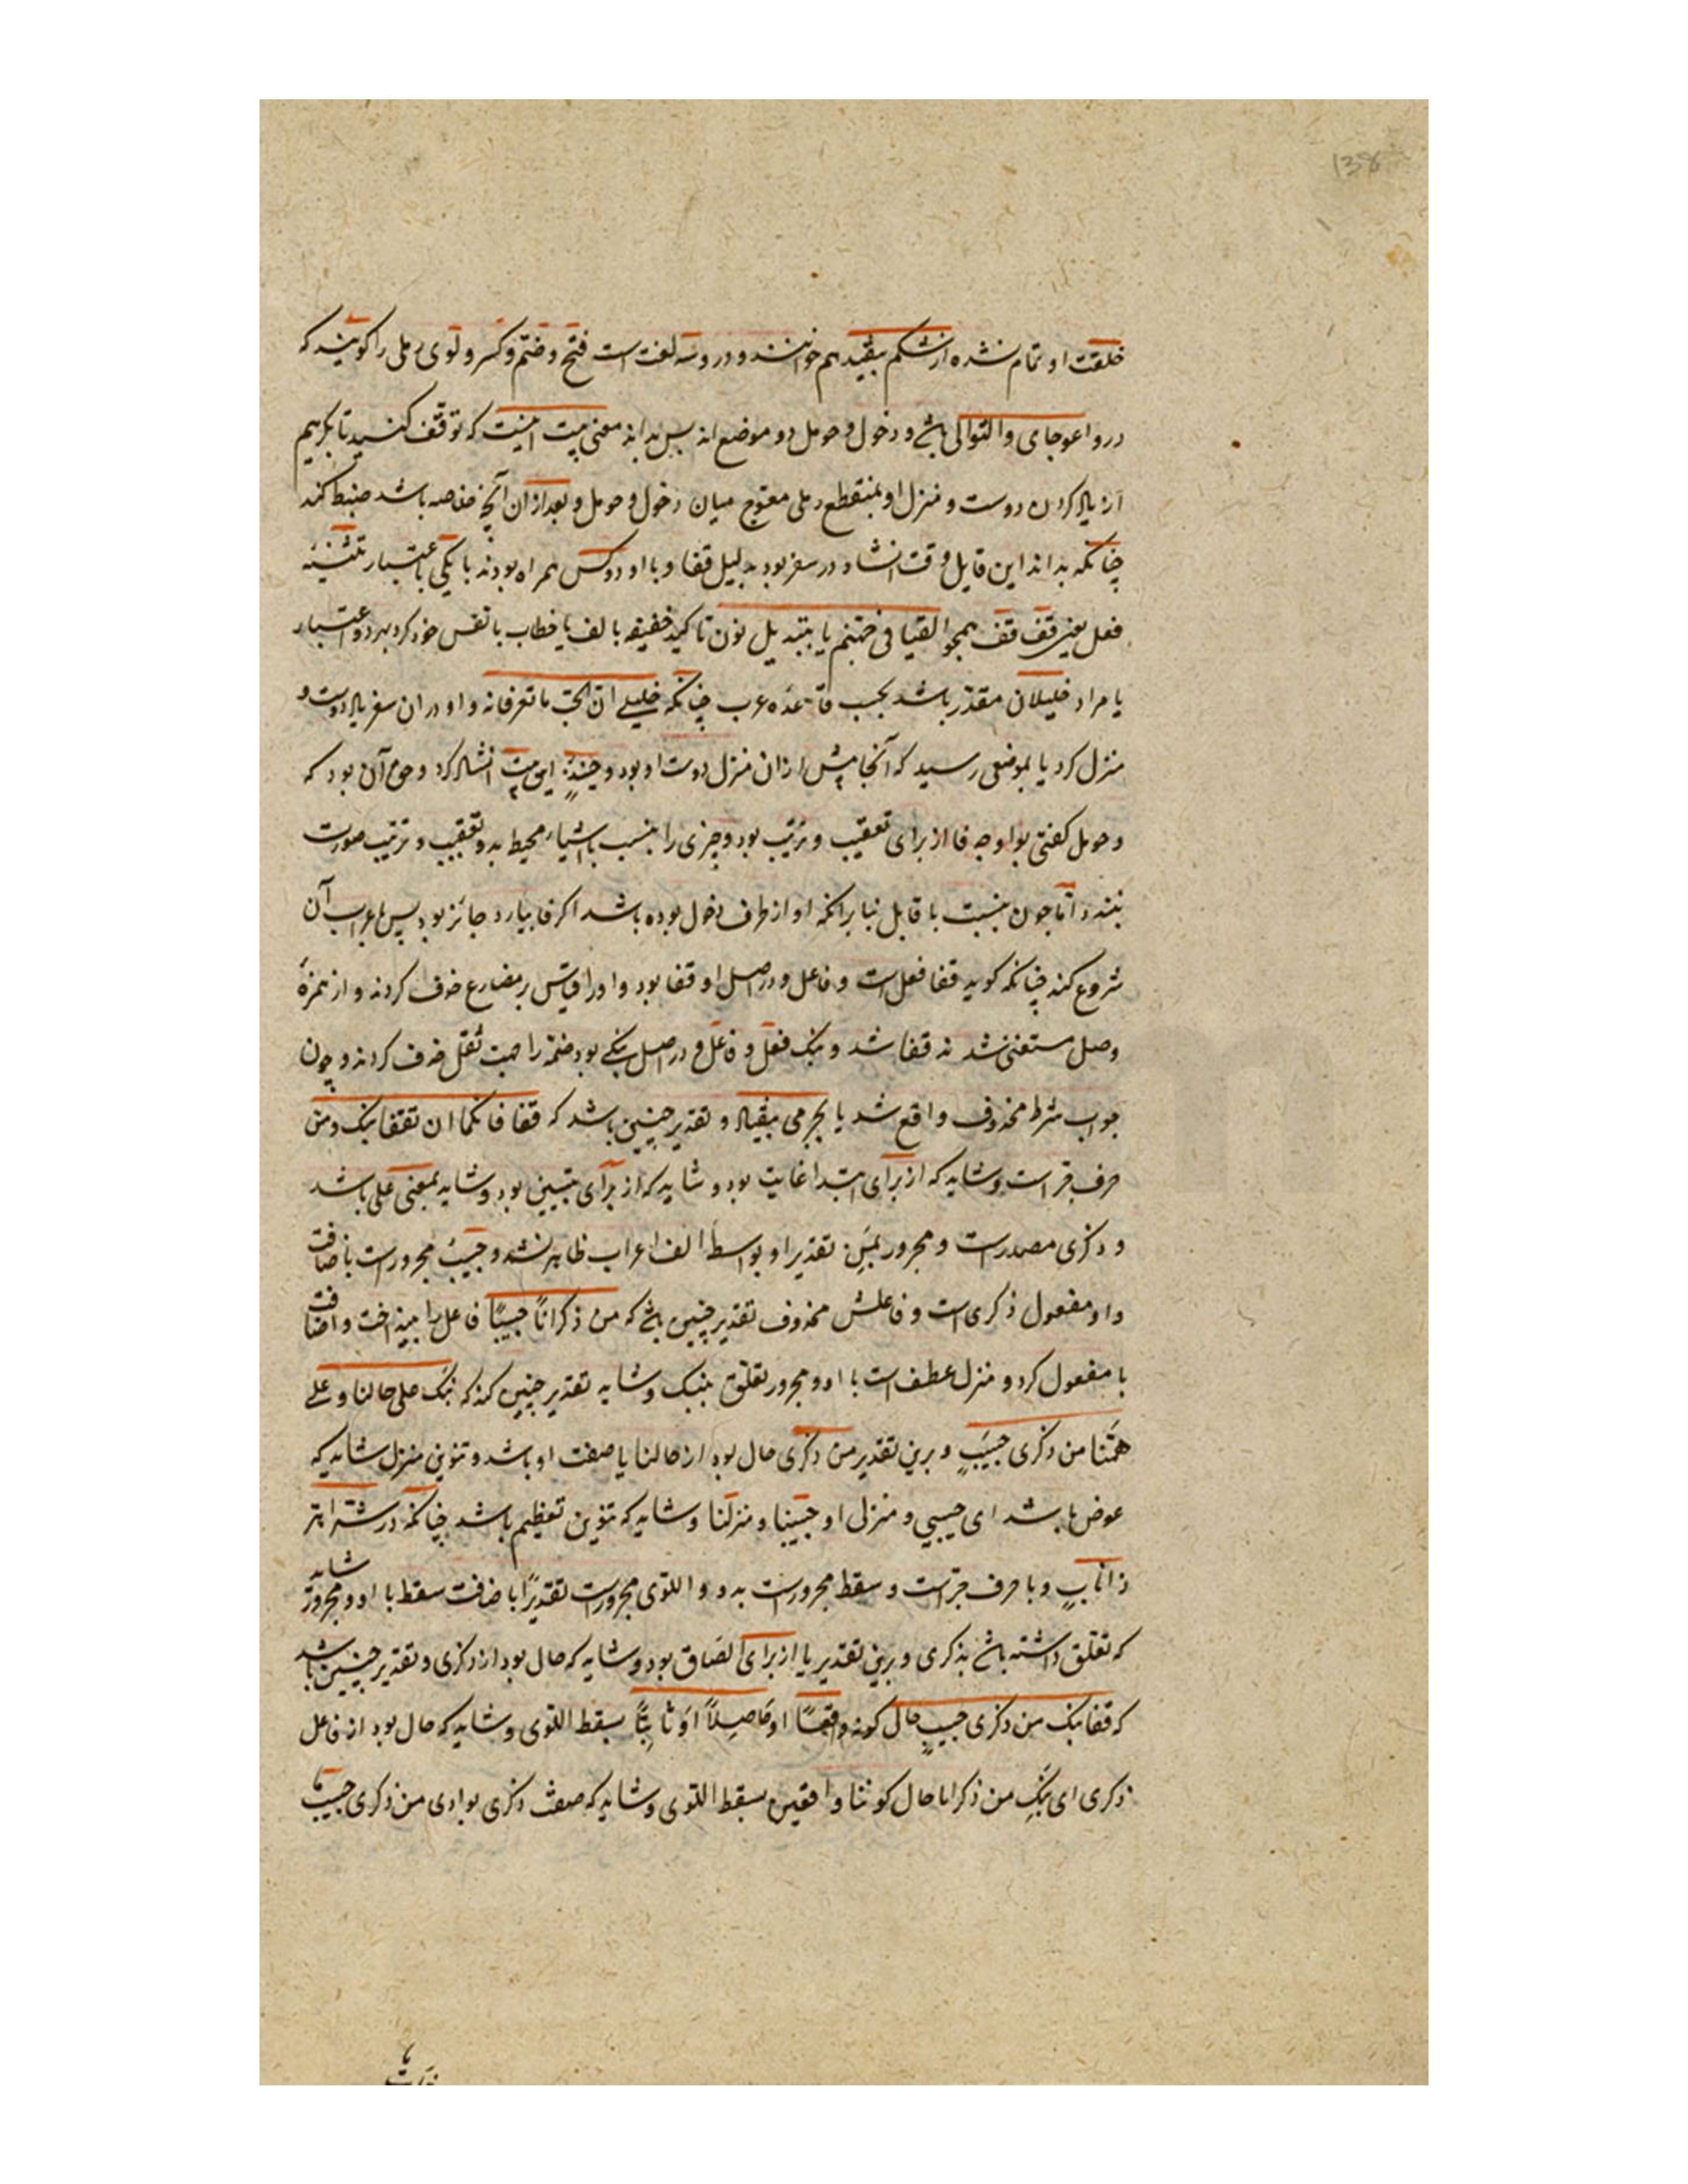 138
خلقت او تمام نشده از شکم بیفتد هم خوانند و درو سه لغت است فتح و ضم و کسر و لوی رملی را گویند که
درو اعوجای و التوائی باشد و دخول و حومل دو موضع اند پس بدانند معنی بیت اینست که توقف کنید تا بگریم
از یاد کردن دوست و منزل او بمنقطع رملی معوج میان دخول و حومل و بعد از آن آنچه خاصه باشد ضبط کند
چنانکه بداند این قایل وقت انشاد در سفر بود بدلیل قفا و با او دو کس همراه بودند یا یکی باعتبار تثنیه
فعل یعنی قف قف همچو القیا فی جهنم یا بتبدیل نون تاکید خفیفه بالف یا خطاب با نفس خود کرد بهر دو اعتبار
یا مراد خلیلان مقدر باشد بحسب قاعده عرب چنانکه خلیلی ان الحب ما تعرفانه و او در ان سفر یاد دوست و
منزل کرد یا بموضعی رسید که آنجا پیش از ان منزل دوست او بود و حینئذ این بیت انشاد کرد و حق آن بود که
و حومل گفتی بواو چه فا از برای تعقیب و ترتیب بود و چیزی را بنسبت باشیاء محیط بدو تعقیب و ترتیب صورت
نبندد اما چون بنسبت با قایل بنا برانکه او از طرف دخول بوده باشد اگر فا بیارد جائز بود پس باعراب آن
شروع کند چنانکه گوید قفا فعل است و فاعل و در اصل اوقفا بود واو را قیاس بر مضارع حذف کردند و از همزهٔ
وصل مستغنی شدند قفا شد و نبک فعل و فاعل و در اصل نبکی بود ضمه را جهت ثقل حذف کردند و چون
جواب شرط محذوف واقع شد یا بجزمی بیفتاد و تقدیر چنین باشد که قفا فانکما ان تقفا نبک و من
حرف جر است و شاید که از برای ابتداء غایت بود و شاید که از برای تبیین بود و شاید بمعنی علی باشد
و ذکری مصدر است و مجرور بمن تقدیرا و بواسطهٔ الف اعراب ظاهر نشد و حبیب مجرور است باضافت
و او مفعول ذکری است و فاعلش محذوف تقدیر چنین باشد که من ذکرانا حبیبا فاعل را بینداخت و اضافت
با مفعول کرد و منزل عطف است با او و مجرور تعلق بنبک و شاید تقدیر چنین کند که نبک علی حالنا و علی
همنا من ذکری حبیب و برین تقدیر من ذکری حال بود از حالنا یا صفت او باشد و تنوین منزل شاید که
عوض یا باشد ای حبیبی و منزلی او حبیبنا و منزلنا و شاید که تنوین تعظیم باشد چنانکه در شر اهر
ذا ناب و با حرف جر است و سقط مجرور است بدو و اللوی مجرور است تقدیرا باضافت سقط با او و مجرور شاید
که تعلق داشته باشد بذکری و برین تقدیر یا از برای الصاق بود و شاید که حال بود از ذکری و تقدیر چنین باشد
که قفا نبک من ذکری حبیب حال کونه واقعا او حاصلا او ثابتا بسقط اللوی و شاید که حال بود از فاعل
ذکری ای نبک من ذکرانا حال کوننا واقفین بسقط اللوی و شاید که صفت ذکری بود ای من ذکری حبیب